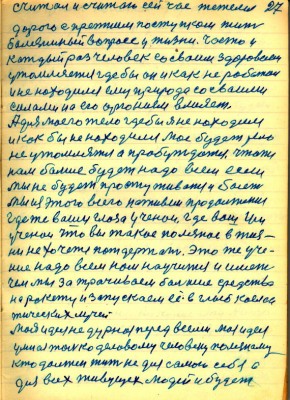 считал и считаю сей час тяжелая 27
дорого с прежним поступком жить
болезненный вопрос у жизни. Часто и
каждый раз человек со своим здоровьем
утомляется где бы он и как не работал
и не находился ему природа со своими
силами на его организм влияет.
А для моего тела где бы я не находился
и как бы не находился мое будет умо
не утомляться а пробуждаться, что ты
нам больше будет надо всем если
мы не будем простуживаться и болеть
мы из этого всего начинаем продолжения
Где же ваши глаза ученого, где ваш ум
ученого Это вы такое полезное в жиз-
ни не хочете поддержать. Это же уче-
ние надо всем нам научится и иметь
чем мы затрачиваем большие средства
на ракету и запускаем её в глыб косми
тических лучей
Моя идея не дурная перед всеми моя идея
умна только деловому человеку полезному
кто должен жить не для самого себя а
для всех живущих людей и будет